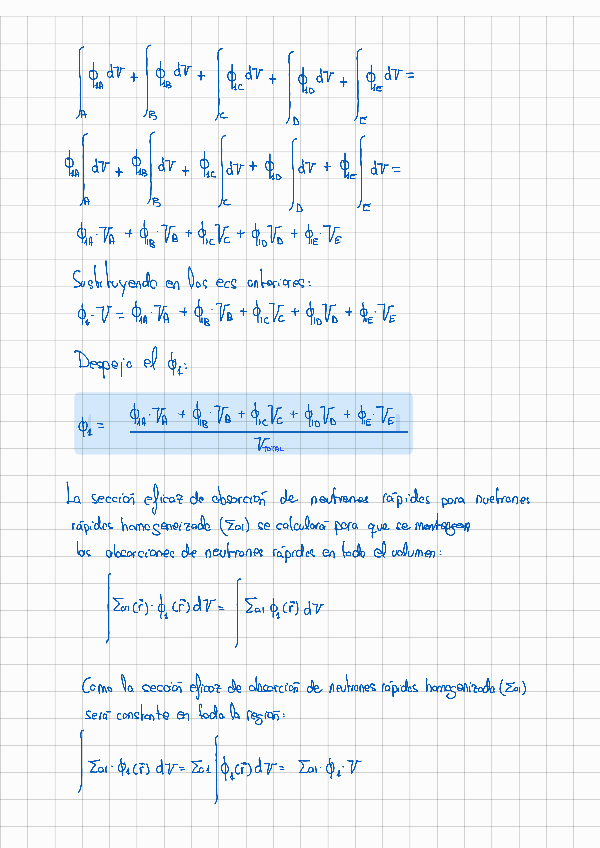 ∫_A ϕ_1A dV + ∫_B ϕ_1B dV + ∫_C ϕ_1C dV + ∫_D ϕ_1D dV + ∫_E ϕ_1E dV =
ϕ_1A ∫_A dV + ϕ_1B ∫_B dV + ϕ_1C ∫_C dV + ϕ_1D ∫_D dV + ϕ_1E ∫_E dV =
ϕ_1A · V_A + ϕ_1B · V_B + ϕ_1C V_C + ϕ_1D V_D + ϕ_1E · V_E
Sustituyendo en las ecs anteriores:
ϕ_1 · V = ϕ_1A · V_A + ϕ_1B · V_B + ϕ_1C V_C + ϕ_1D V_D + ϕ_1E · V_E
Despejo el ϕ_1:
ϕ_1 = (ϕ_1A · V_A + ϕ_1B · V_B + ϕ_1C V_C + ϕ_1D V_D + ϕ_1E · V_E) / V_TOTAL
La sección eficaz de absorción de neutrones rápidos para nuetrones
rápidos homogeneizada (Σa1) se calculará para que se mantengan
las absorciones de neutrones rápidos en todo el volumen:
∫ Σa1(r⃗) · ϕ_1(r⃗) dV = ∫ Σa1 ϕ_1(r⃗) dV
Como la sección eficaz de absorción de neutrones rápidos homogenizada (Σa1)
será constante en toda la región:
∫ Σa1 · ϕ_1(r⃗) dV = Σa1 ∫ ϕ_1(r⃗) dV = Σa1 · ϕ_1 · V